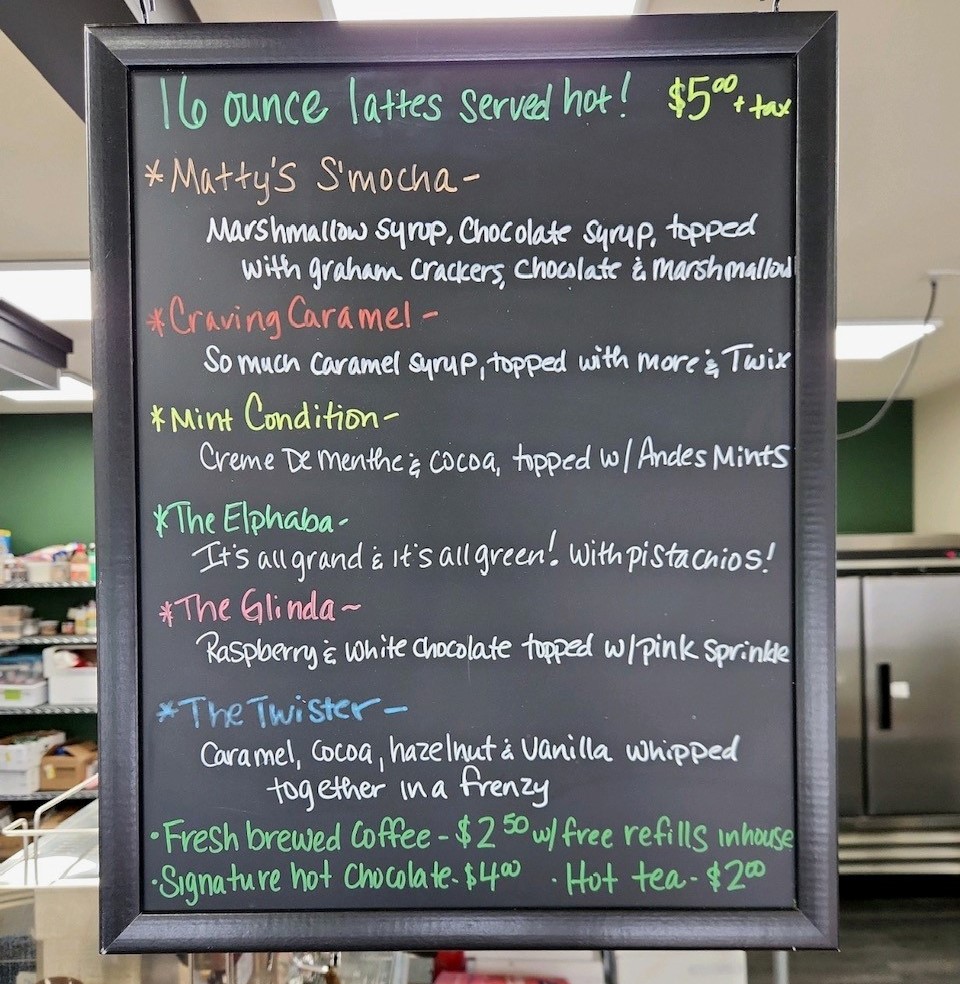 16 ounce lattes served hot! $5⁰⁰ + tax
*Matty's S'mocha -
Marshmallow syrup, Chocolate syrup, topped
with graham crackers, chocolate & marshmallow
*Craving Caramel -
So much caramel syrup, topped with more & Twix
*Mint Condition -
Creme De menthe & cocoa, topped w/ Andes Mints
*The Elphaba -
It's all grand & it's all green! With pistachios!
*The Glinda ~
Raspberry & white chocolate topped w/ pink sprinkle
*The Twister -
Caramel, Cocoa, hazelnut & Vanilla whipped
together in a frenzy
·Fresh brewed Coffee - $2⁵⁰ w/ free refills inhouse
·Signature hot chocolate - $4⁰⁰ · Hot tea - $2⁰⁰